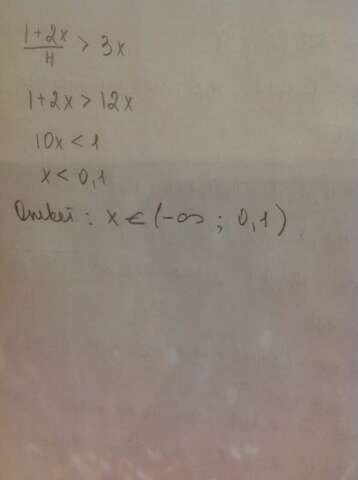 1+2x/4 > 3x
1+2x > 12x
10x < 1
x < 0,1
Ответ: x ∈ (-∞ ; 0,1)